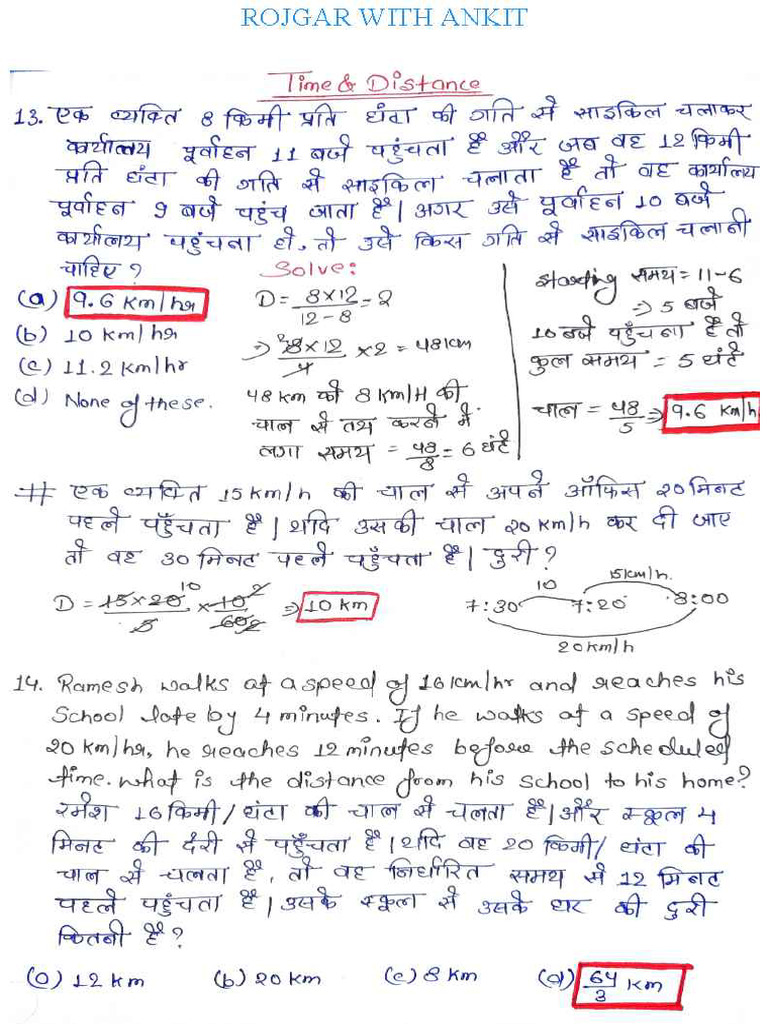 ROJGAR WITH ANKIT
Time & Distance
13. एक व्यक्ति 8 किमी प्रति घंटा की गति से साइकिल चलाकर
कार्यालय पूर्वाहन 11 बजे पहुंचता है और जब वह 12 किमी
प्रति घंटा की गति से साइकिल चलाता है तो वह कार्यालय
पूर्वाहन 9 बजे पहुंच जाता है| अगर उसे पूर्वाहन 10 बजे
कार्यालय पहुंचना हो, तो उसे किस गति से साइकिल चलानी
चाहिए?
Solve:
(a) 9.6 Km/hr
(b) 10 km/hr
(c) 11.2 km/hr
(d) None of these.
D = 8×12/12-8 = 2
⇒ 8×12/4 × 2 = 48km
48 km को 8 km/H की
चाल से तय करने में
लगा समय = 48/8 = 6 घंटे
starting समय = 11-6
⇒ 5 बजे
10 बजे पहुँचना है तो
कुल समय = 5 घंटे
चाल = 48/5 ⇒ 9.6 Km/h
# एक व्यक्ति 15km/h की चाल से अपने ऑफिस 20 मिनट
पहले पहुँचता है| यदि उसकी चाल 20 km/h कर दी जाए
तो वह 30 मिनट पहले पहुँचता है| दुरी?
D = 15×20/5 × 10/60 ⇒ 10 km
10 2
2
15km/h.
10
7:30 7:20 8:00
20km/h
14. Ramesh walks at a speed of 16 km/hr and reaches his
School late by 4 minutes. If he walks at a speed of
20 km/hr, he reaches 12 minutes before the scheduled
time. what is the distance from his school to his home?
रमेश 16 किमी/घंटा की चाल से चलता है| और स्कूल 4
मिनट की देरी से पहुँचता है| यदि वह 20 किमी/घंटा की
चाल से चलता है, तो वह निर्धारित समय से 12 मिनट
पहले पहुंचता है| उसके स्कूल से उसके घर की दुरी
कितनी है?
(a) 12 km (b) 20 Km (c) 8 Km (d) 64/3 Km